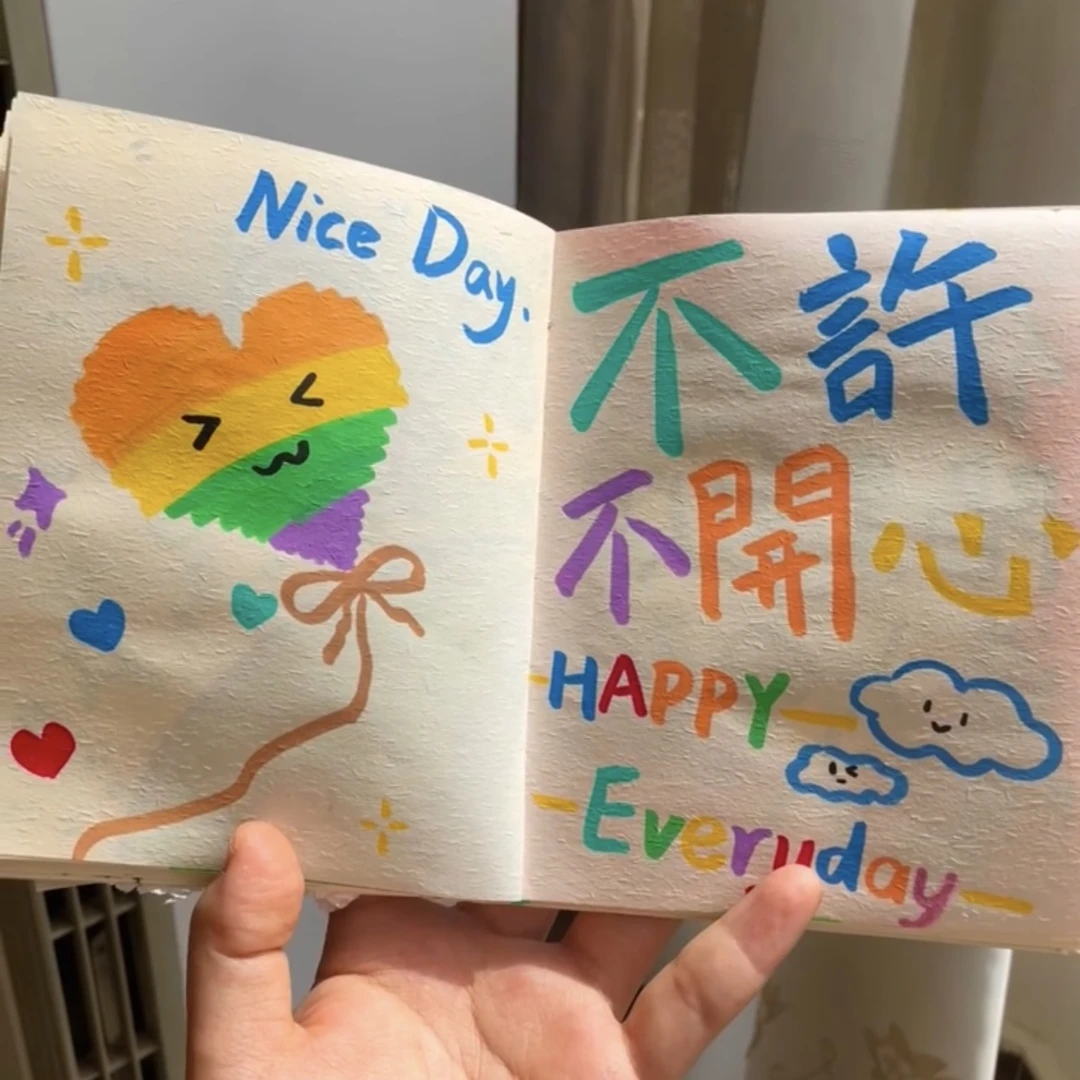 Nice Day.
不許
不開心
HAPPY
Everyday